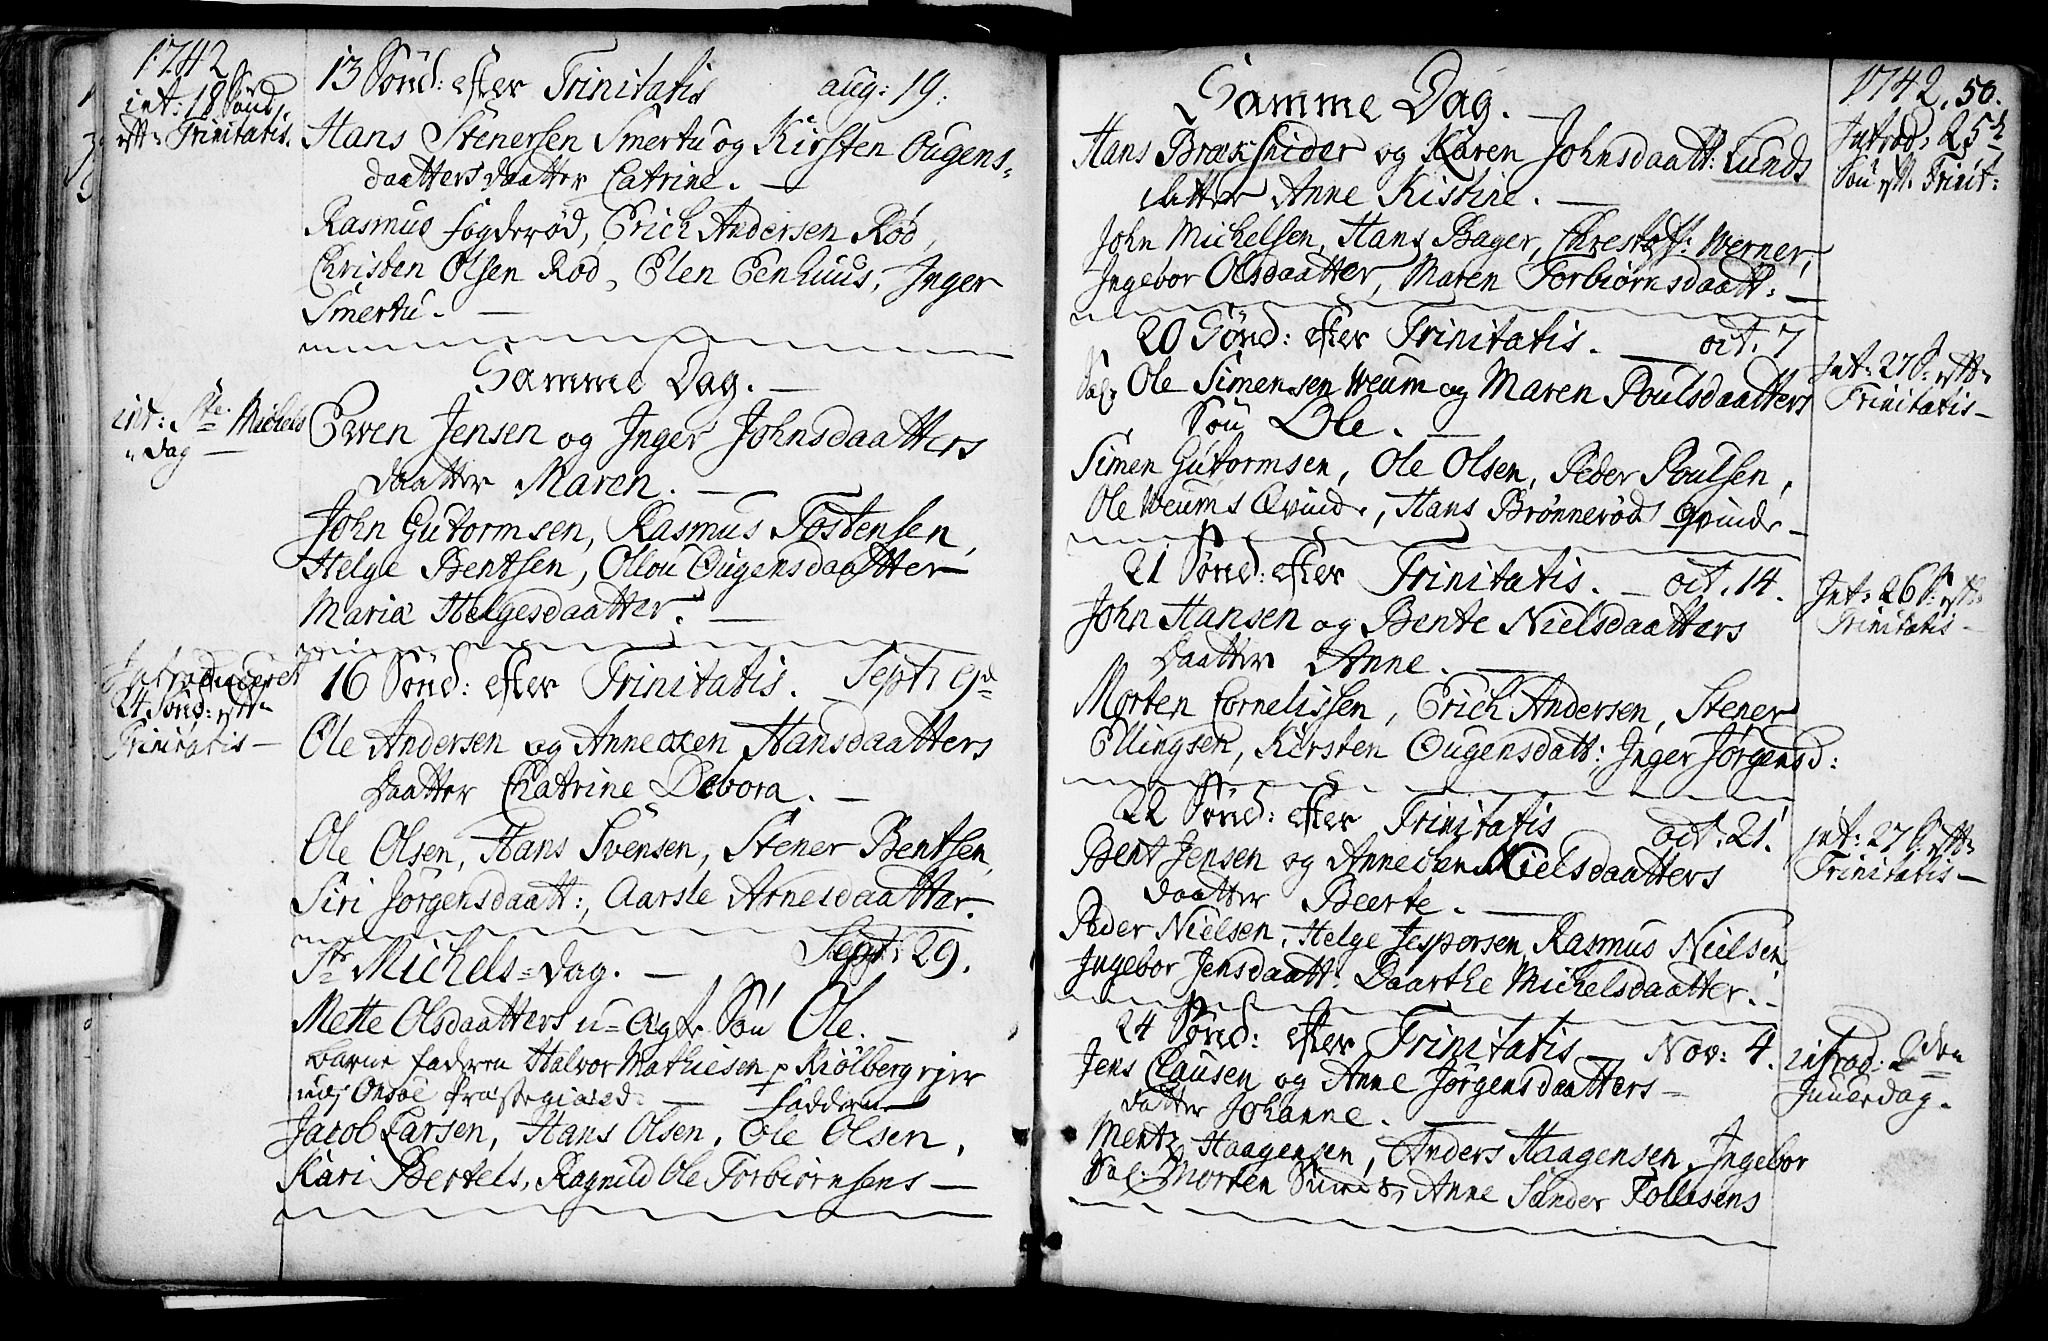 1742
int: 18 Sönd:
eft: Trinitatis.
13 Sönd: efter Trinitatis aug: 19:
Hans Stenersen Smertu og Kirsten Ougens-
daatters daatter Catrine. —
Rasmus fogderød, Erich Andersen Rød,
Christen Olsen Rød, Elen Eenhuus, Inger
Smertu. —
Samme Dag. —
int: Ste Michels
dag —
Even Jensen og Inger Johnsdaatters
daatter Maren. —
John Gutormsen, Rasmus Tostensen,
Helge Bentsen, Ollou Ougensdaatter
Maria Helgesdaatter. —
Introduceret
24 Sönd: eft:
Trinitatis —
16 Sönd: efter Trinitatis. Sept: 9d
Ole Andersen og Anne Hansdaatters
daatter Chatrine Debora. —
Ole Olsen, Hans Svensen, Stener Bentsen,
Siri Jørgensdaatt:, Aarsle Arnesdaatter.
St Michels-dag. — Sept: 29.
Mette Olsdaatters u-ægte Sön Ole. —
barne faderen Halvor Mathiesen p Kiölberg eier
udj Onsöe præstegield. — faddere
Jacob Larsen, Hans Olsen, Ole Olsen,
Kari Bertels, Ragnild Ole Torbiørnsens —
1742. 50.
Samme Dag. —
Introd: 25de
Sön eft: Trinit:
Hans Bræksnider og Karen Johnsdaatt: Lunds
datter Anne Kistine. —
John Michelsen, Hans Bager, Christoff: Werner,
Ingebor Olsdaatter, Maren Torbiørnsdaatt: —
20 Sönd: efter Trinitatis. — oct. 7
Int: 27 S: eft:
Trinitatis —
Sal. Ole Simensen Weum og Maren Poulsdaatters
Sön Ole. —
Simen Gutormsen, Ole Olsen, Peder Poulsen,
Ole Weums Qvinde, Hans Brønnerøds qvinde —
21 Sönd: efter Trinitatis. — oct. 14.
Int: 26 S: eft:
Trinitatis —
John Hansen og Bente Nielsdaatters
Daatter Anne. —
Morten Cornelissen, Erich Andersen, Stener
Ellingsen, Kirsten Ougensdatt: Inger Jørgensd:
22 Sönd: efter Trinitatis oct. 21.
int: 27 S. eft:
Trinitatis —
Bent Jensen og Annechen Nielsdaatters
Daatter Beerte. —
Peder Nielsen, Helge Jespersen, Rasmus Nielsen
Ingebor Jensdaatt: Daarthe Michelsdaatter. —
24 Sönd: efter Trinitatis — Nov: 4.
introd: 2den
Juuledag.
Jens Clausen og Anne Jørgensdaatters —
datter Johanne. —
Mentz Haagensen, Anders Haagensen, Ingebor
Sal: Morten Anne Sander Tollesens